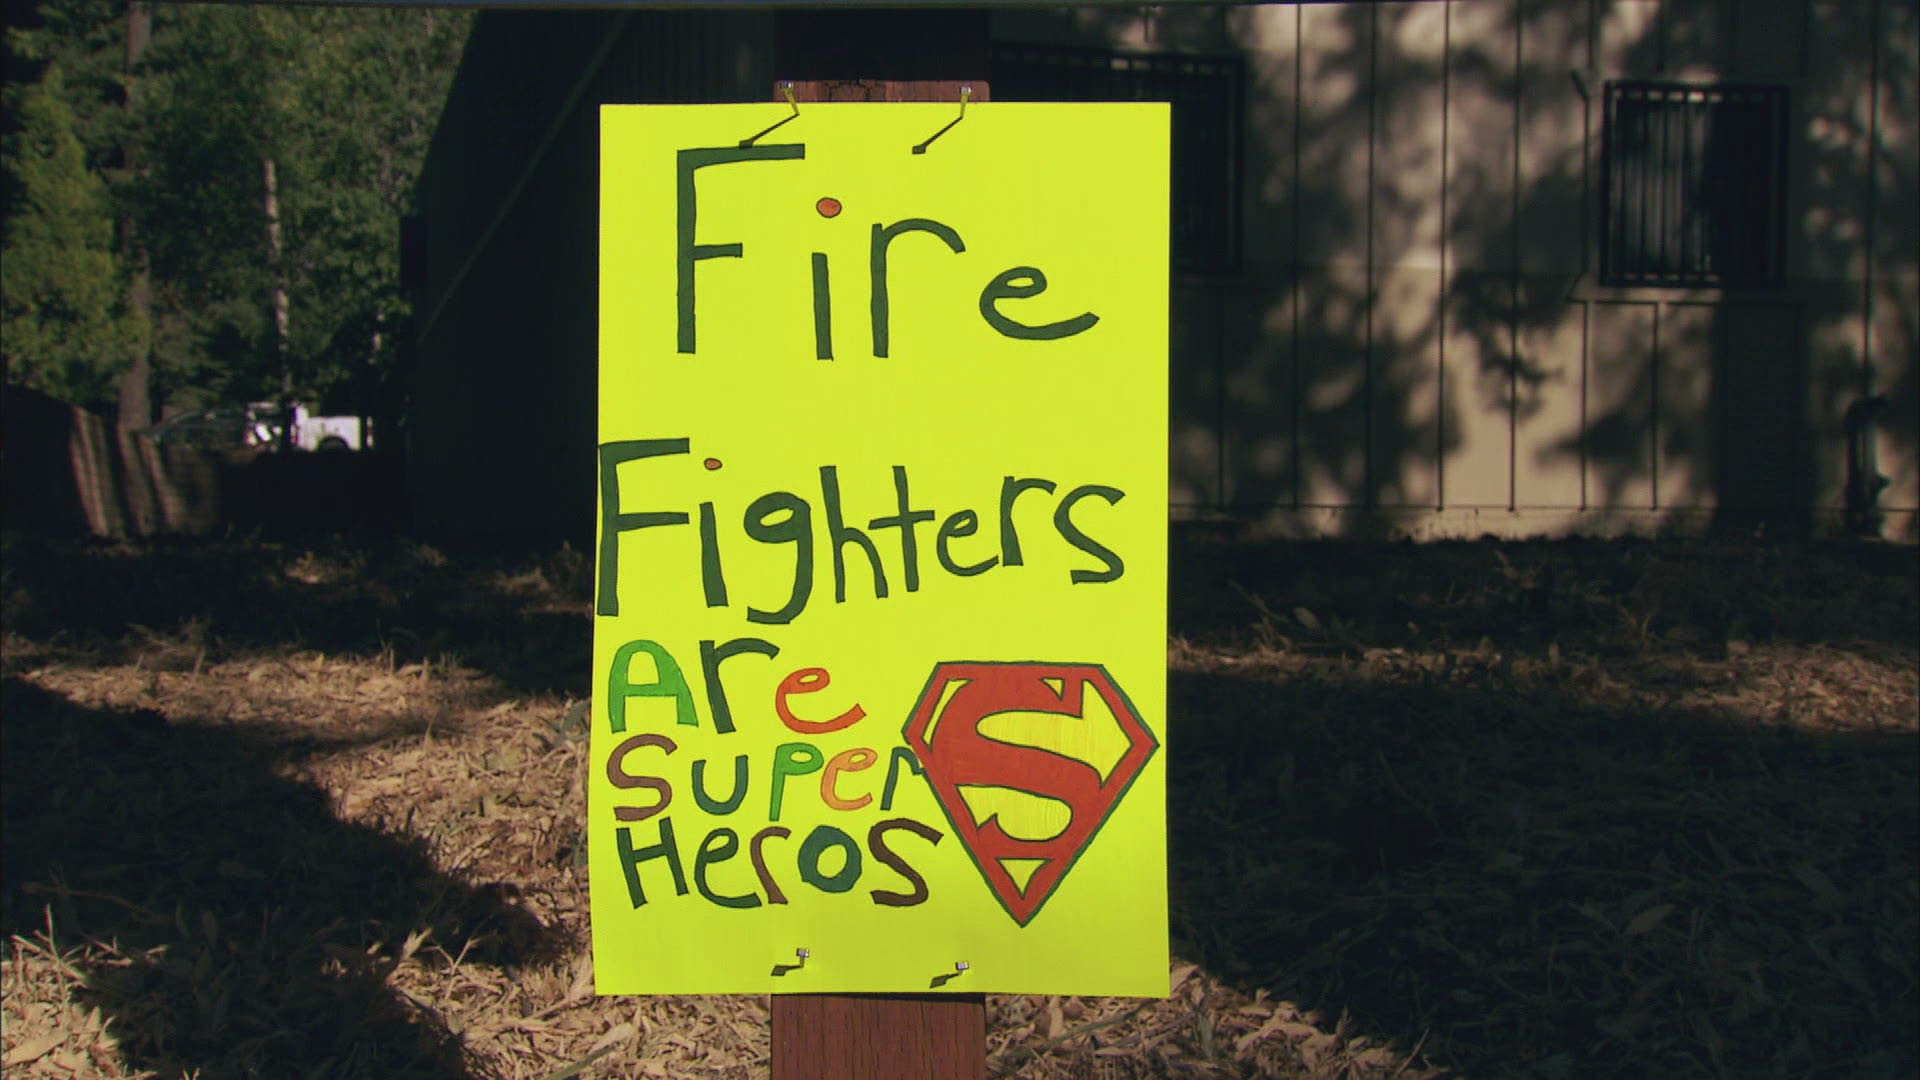 Fire
Fighters
Are
Super
Heros
S